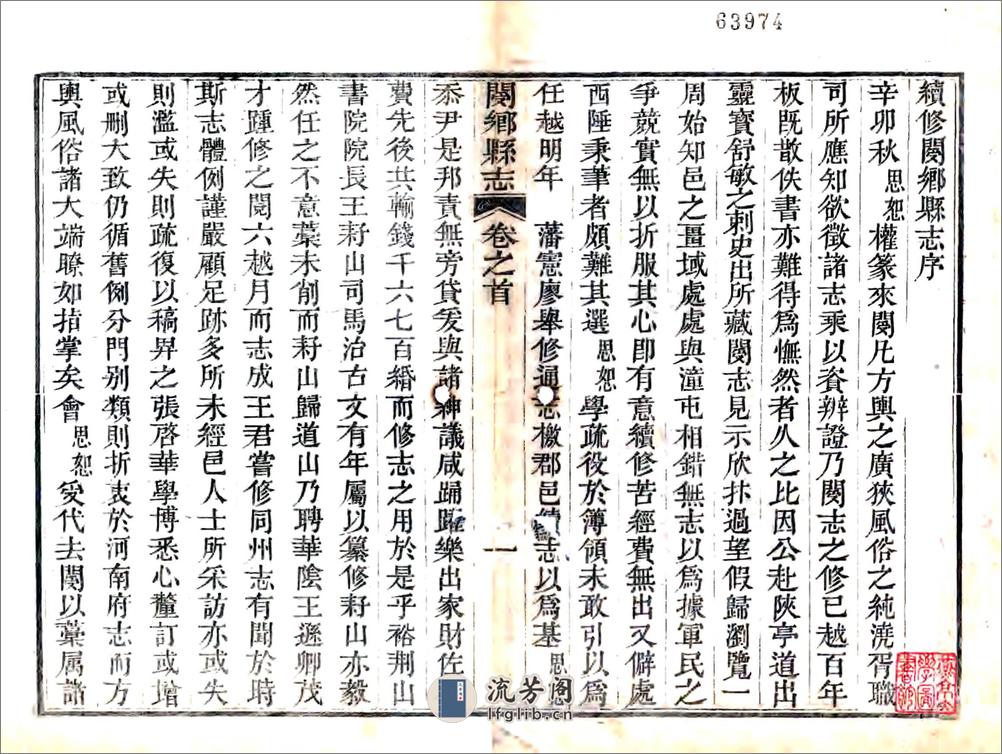 63974
續修閿鄉縣志序
辛卯秋思恕權篆來閿凡方輿之廣狹風俗之純澆胥職
司所應知欲徵諸志乘以資辨證乃閿志之修已越百年
板既散佚書亦難得爲憮然者久之比因公赴陝亭道出
靈寶舒敏之刺史出所藏閿志見示欣抃過望假歸瀏覽一
周始知邑之畺域處處與潼屯相錯無志以爲據軍民之
爭競實無以折服其心即有意續修苦經費無出又僻處
西陲秉筆者頗難其選思恕學疏役於簿領未敢引以爲
任越明年 藩憲廖舉修通志檄郡邑續志以爲基思恕
閿鄉縣志 卷之首 一
忝尹是邦責無旁貸爰與諸紳議咸踴躍樂出家財佐
費先後共輸錢千六七百緡而修志之用於是乎裕荆山
書院院長王耔山司馬治古文有年屬以纂修耔山亦毅
然任之不意藁未削而耔山歸道山乃聘華陰王遜卿茂
才踵修之閱六越月而志成王君嘗修同州志有聞於時
斯志體例謹嚴顧足跡多所未經邑人士所采訪亦或失
則濫或失則疏復以稿畀之張啓華學博悉心釐訂或增
或删大致仍循舊例分門别類則折衷於河南府志而方
輿風俗諸大端瞭如指掌矣會思恕受代去閿以藁属諸
流芳阁
lfglib.cn